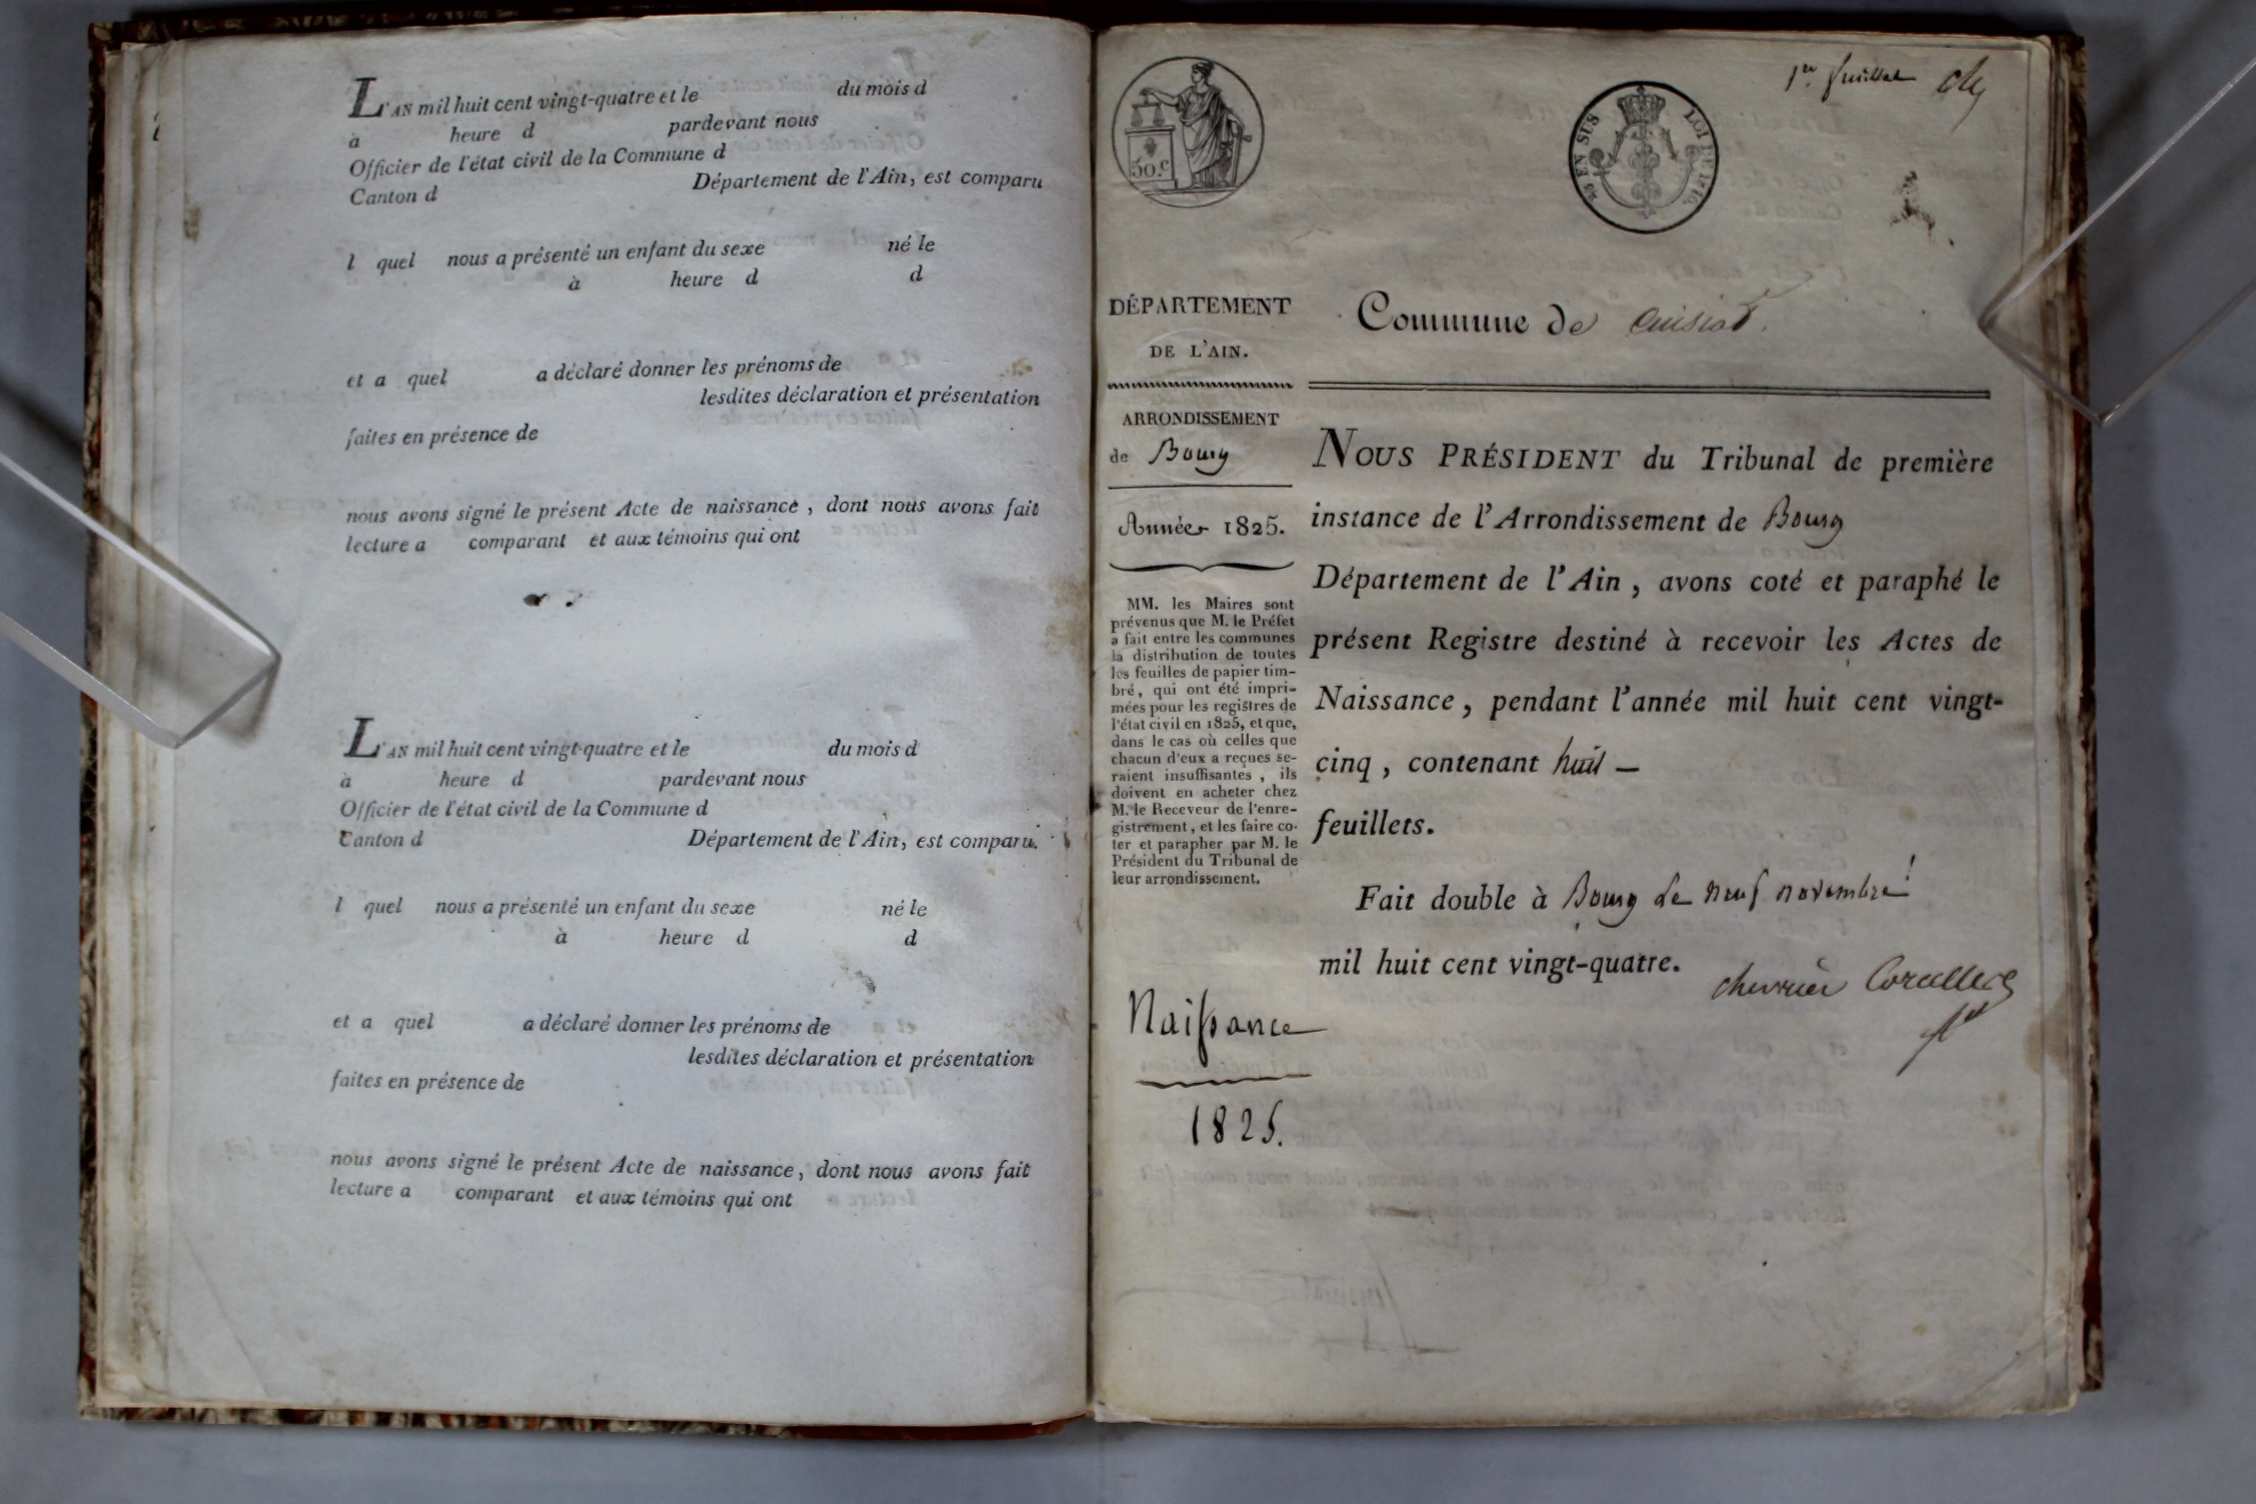 L'AN mil huit cent vingt-quatre et le du mois d
à heure d pardevant nous
Officier de l'état civil de la Commune d
Canton d Département de l'Ain, est comparu
l quel nous a présenté un enfant du sexe né le
à heure d d
et a quel a déclaré donner les prénoms de
lesdites déclaration et présentation
faites en présence de
nous avons signé le présent Acte de naissance, dont nous avons fait
lecture a comparant et aux témoins qui ont
L'AN mil huit cent vingt-quatre et le du mois d
à heure d pardevant nous
Officier de l'état civil de la Commune d
Canton d Département de l'Ain, est comparu
l quel nous a présenté un enfant du sexe né le
à heure d d
et a quel a déclaré donner les prénoms de
lesdites déclaration et présentation
faites en présence de
nous avons signé le présent Acte de naissance, dont nous avons fait
lecture a comparant et aux témoins qui ont
1er feuillet
50.c
EN SUS LOI DE 1816.
DÉPARTEMENT
DE L'AIN.
ARRONDISSEMENT
de Bourg
Année 1825.
MM. les Maires sont
prévenus que M. le Préfet
a fait entre les communes
la distribution de toutes
les feuilles de papier tim-
bré, qui ont été impri-
mées pour les registres de
l'état civil en 1825, et que,
dans le cas où celles que
chacun d'eux a reçues se-
raient insuffisantes, ils
doivent en acheter chez
M. le Receveur de l'enre-
gistrement, et les faire co-
ter et parapher par M. le
Président du Tribunal de
leur arrondissement.
Naissance
1825.
Commune de Cuisiat.
NOUS PRÉSIDENT du Tribunal de première
instance de l'Arrondissement de Bourg
Département de l'Ain, avons coté et paraphé le
présent Registre destiné à recevoir les Actes de
Naissance, pendant l'année mil huit cent vingt-
cinq, contenant huit —
feuillets.
Fait double à Bourg le neuf novembre
mil huit cent vingt-quatre.
chevrier Corcelles